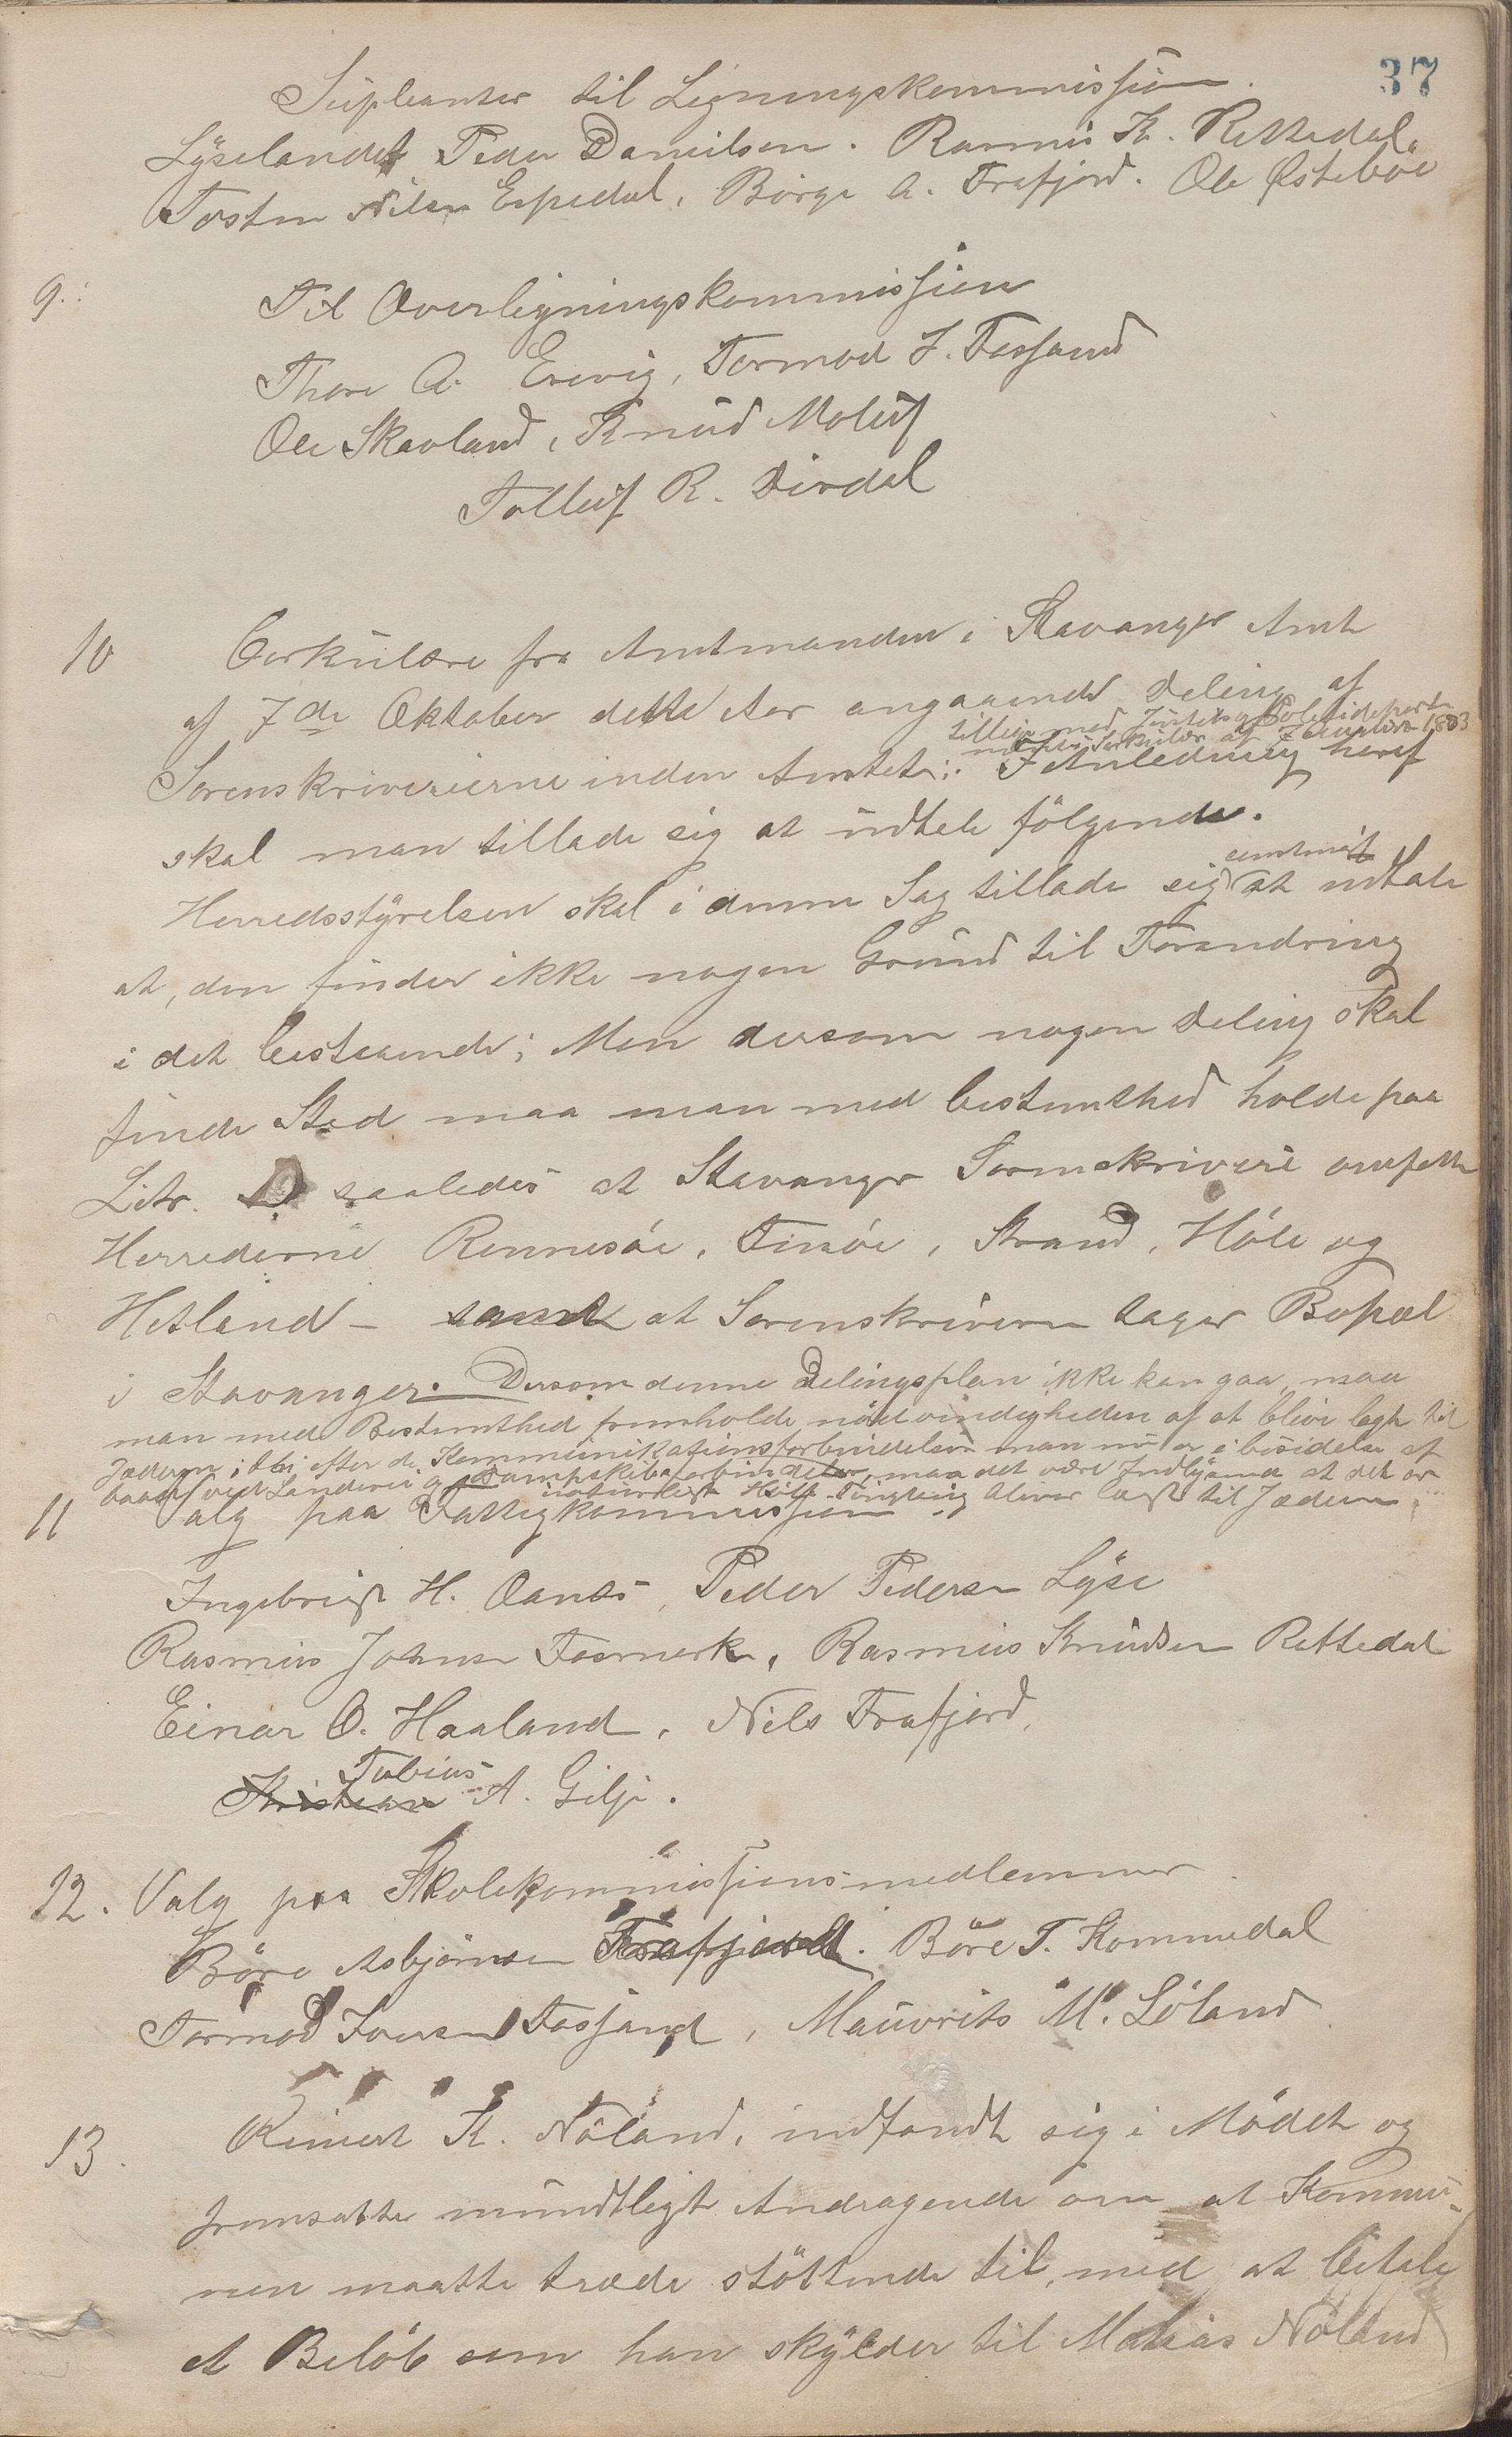 37
Supleanter til Ligningskommission.
Lyselandet Peder Danielsen. Rasmus K. Rettedal,
Tosten Nilsen Espedal, Börge A. Frafjord. Ole Östeböe
9.: Til Overligningskommission
Thore A. Erevig, Tormod J. Fossand
Ole Skavland, Knud Meluf
Tolleif R. Dirdal
10 Cirkulære fra Amtmanden i Stavanger Amt
af 7de Oktober dette Aar angaaende Deling af
tilligemed Justits og Politideparte
mentets Cirkulær af Januar 1883
Sorenskriverierne inden Amtet:. I Anledning heraf
skal man tillade sig at udtale fölgende.
Herredsstyrelsen skal i denne Sag tillade sig at udtale
at, den finder ikke nogen Grund til Forandring
i det bestaaende; Men dersom nogen Deling skal
finde Sted maa man med bestemthed holde paa
Litr. D saaledes at Stavanger Sorenskriveri omfatte
Herrederne Rennesöe, Finöe, Strand, Höle og
Hetland - samt at Sorenskriveren tager Bopæl
i Stavanger. Dersom denne Delingsplan ikke kan gaa, maa
man med Bestemthed fremholde nödvindigheden af at blive lagt til
Jæderen; thi efter de Kommunikationsforbindelser man nu er i besidelse af
baade ved Landevei og Dampskibsforbindelse, maa det være Indlysende at det er
naturligst Höle Tinglag bliver lagt til Jæderen.
11 Valg paa Fattigkommission
Ingebrigt H. Oanes, Peder Pedersen Lyse
Rasmus Johnsen Fosmark, Rasmus Knudsen Rettedal
Einar O. Haaland, Nils Frafjord,
Tobias
Kristian A. Gilje.
12. Valg paa Skolekommissionsmedlemmer
Böre Asbjörnsen Frafjord. Böre T. Kommedal
Tormod Iversen Fosjand, Mauvrits M. Löland
13. Reinert K. Nöland, indfandt sig i Mödet og
fremsatte mundtligt Andragende om at Kommu-
nen maatte træde stöttende til, med at betale
et Belöb som han skylder til Matias Nöland